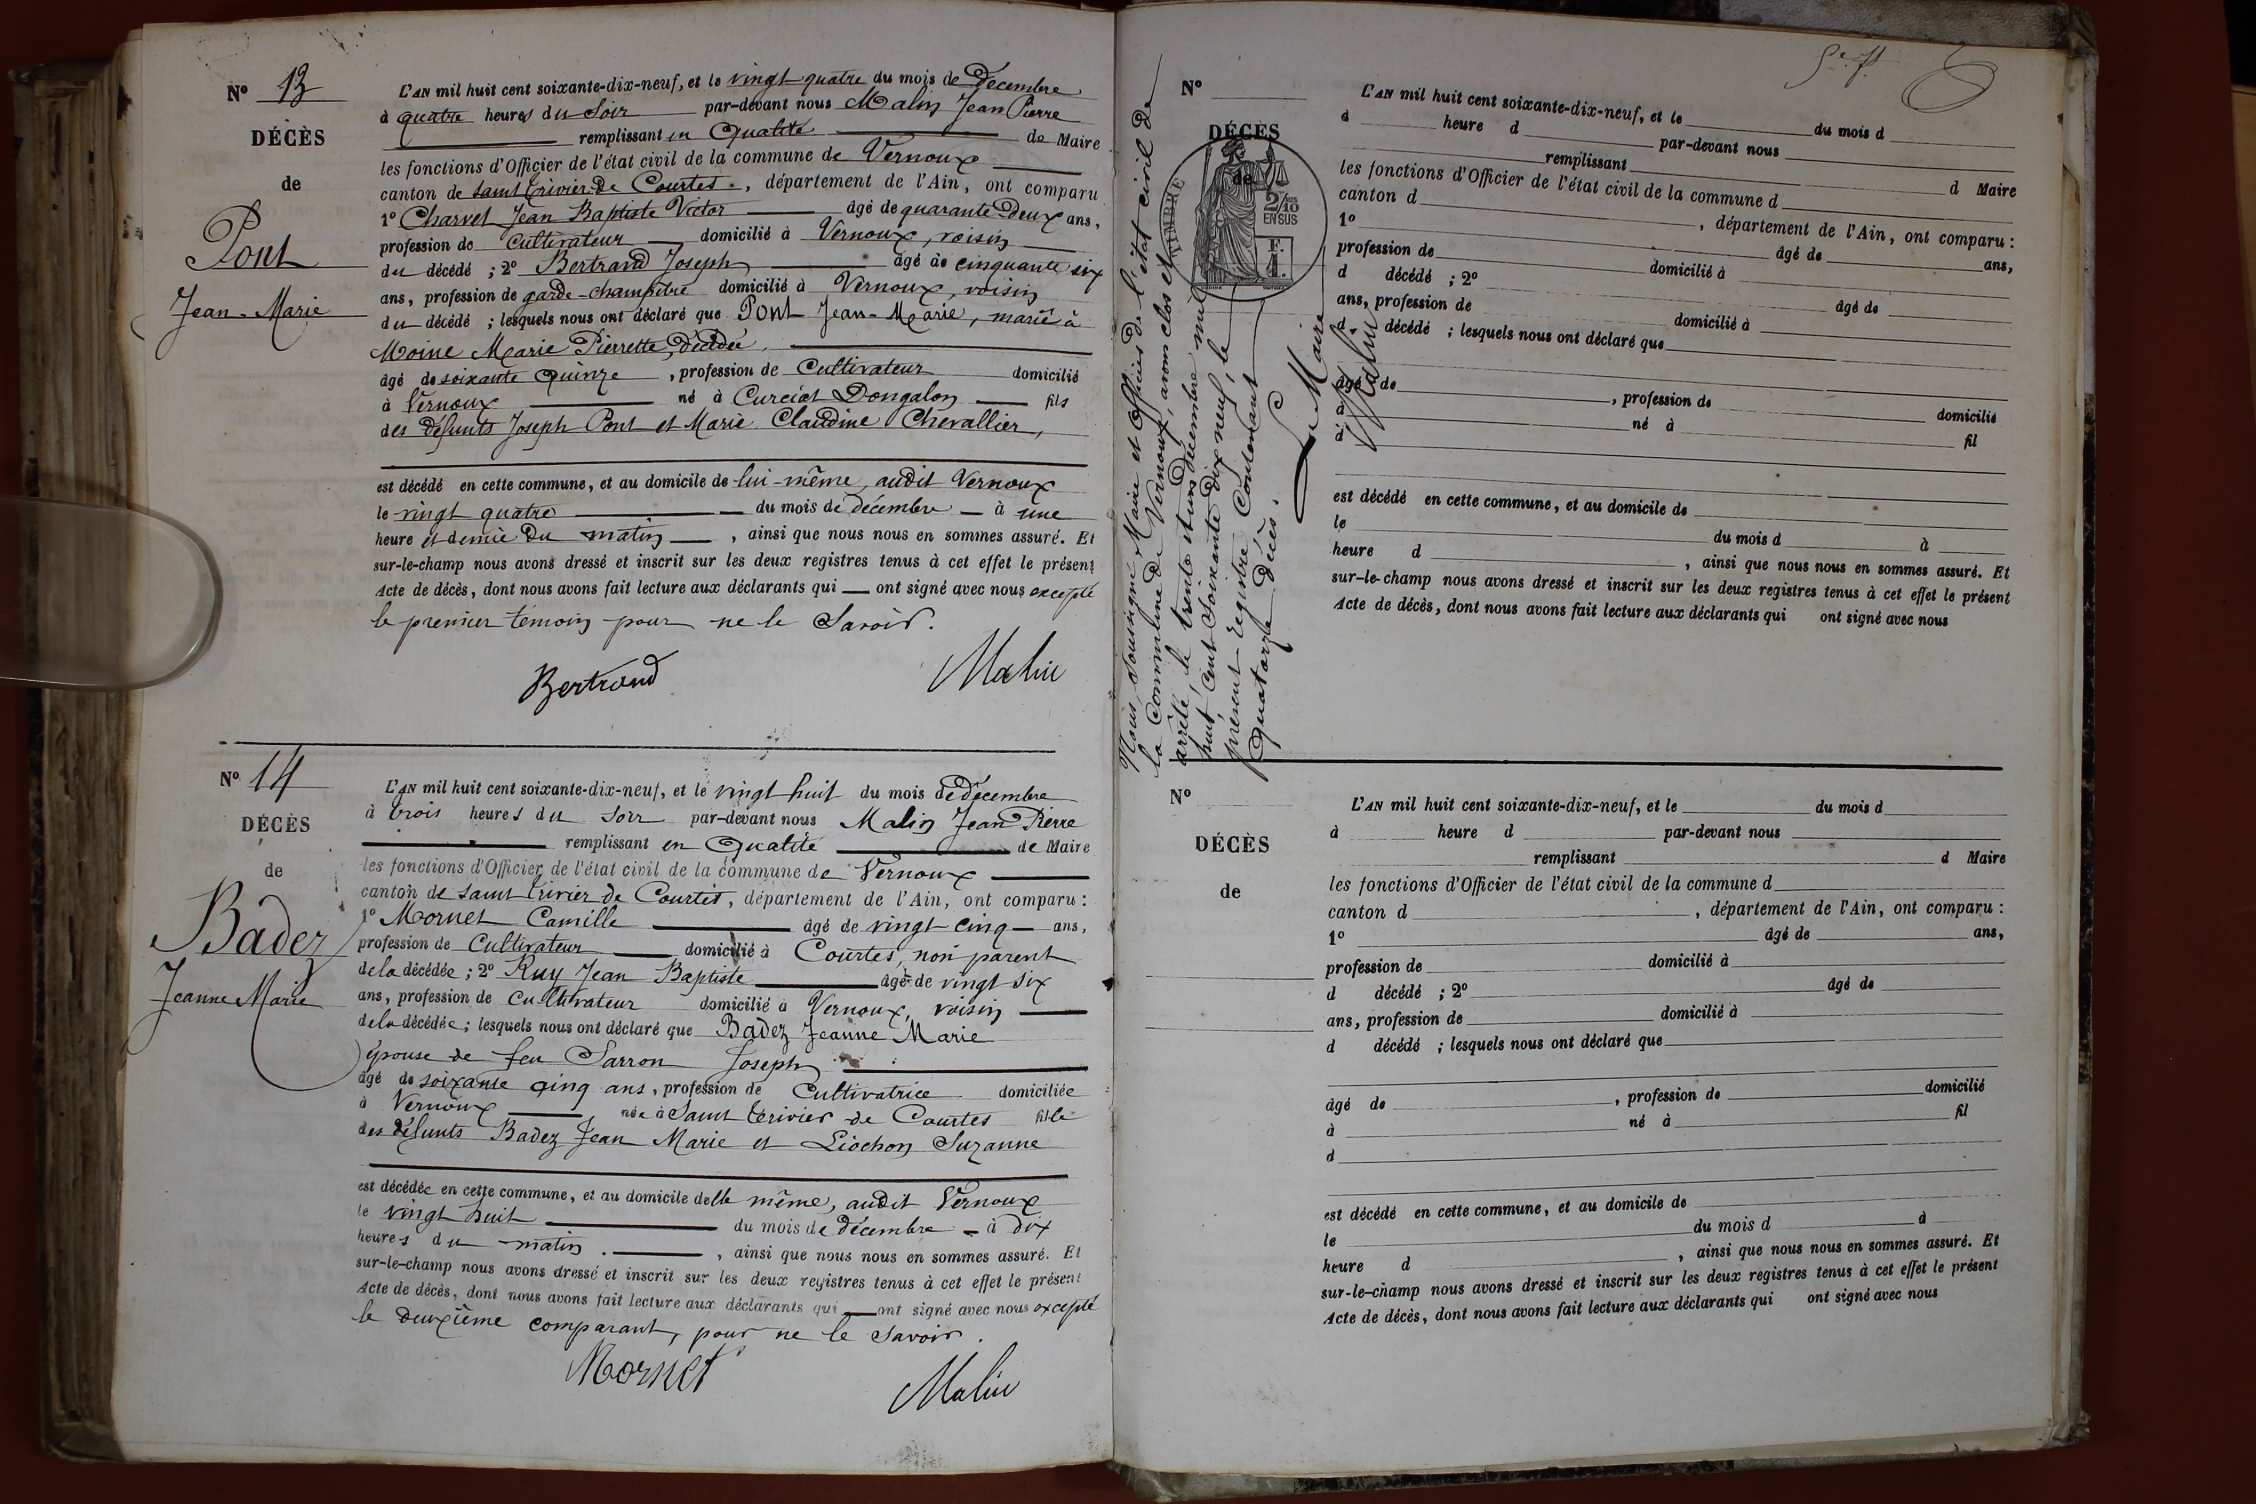 N° 13
DÉCÈS
de
Pont
Jean-Marie
L'AN mil huit cent soixante-dix-neuf, et le vingt quatre du mois de Décembre
à quatre heures du Soir par-devant nous Malin Jean Pierre
remplissant en Qualité de Maire
les fonctions d'Officier de l'état civil de la commune de Vernoux
canton de saint Trivier De Courtes, département de l'Ain, ont comparu
1° Charvet Jean Baptiste Victor âgé de quarante Deux ans,
profession de Cultivateur domicilié à Vernoux, voisin
du décédé ; 2° Bertrand Joseph âgé de cinquante six
ans, profession de garde-champêtre domicilié à Vernoux, voisin
du décédé ; lesquels nous ont déclaré que Pont Jean-Marie, marié à
Moine Marie Pierrette, Décédée
âgé de soixante Quinze, profession de Cultivateur domicilié
à Vernoux né à Curciat Dongalon fils
des défunts Joseph Pont et Marie Claudine Chevallier,
est décédé en cette commune, et au domicile de lui-même, audit Vernoux
le vingt quatre du mois de décembre à une
heure et demie Du matin, ainsi que nous nous en sommes assuré. Et
sur-le-champ nous avons dressé et inscrit sur les deux registres tenus à cet effet le présent
Acte de décès, dont nous avons fait lecture aux déclarants qui ont signé avec nous excepté
le premier témoin pour ne le Savoir.
Bertrand Malin
N° 14
DÉCÈS
de
Badez
Jeanne Marie
L'AN mil huit cent soixante-dix-neuf, et le vingt huit du mois de décembre
à trois heures du soir par-devant nous Malin Jean Pierre
remplissant en Qualité de Maire
les fonctions d'Officier de l'état civil de la commune de Vernoux
canton de saint Trivier de Courtes, département de l'Ain, ont comparu :
1° Mornet Camille âgé de vingt-cinq ans,
profession de Cultivateur domicilié à Courtes, non parent
de la décédée ; 2° Ruy Jean Baptiste âgé de vingt six
ans, profession de Cultivateur domicilié à Vernoux, voisin
de la décédée ; lesquels nous ont déclaré que Badez Jeanne Marie
épouse de feu Sarron Joseph
âgé de soixante cinq ans, profession de Cultivatrice domiciliée
à Vernoux née à Saint Trivier de Courtes fille
des défunts Badez Jean Marie et Liochon Suzanne
est décédée en cette commune, et au domicile delle même, audit Vernoux
le vingt huit du mois de décembre à dix
heures du matin, ainsi que nous nous en sommes assuré. Et
sur-le-champ nous avons dressé et inscrit sur les deux registres tenus à cet effet le présent
Acte de décès, dont nous avons fait lecture aux déclarants qui ont signé avec nous excepté
le deuxième comparant, pour ne le savoir.
Mornet Malin
Nous soussigné Maire et Officier de l'état civil de
la commune de Vernoux, avons clos et
arrêté, le trente et un Décembre mil
huit cent soixante Dix neuf, le
présent registre Contenant
Quatorze Décès.
Le Maire
Malin
N°
DÉCÈS
de
TIMBRE
2/10
EN SUS
F.
1.
L'AN mil huit cent soixante-dix-neuf, et le du mois d
à heure d par-devant nous
remplissant d Maire
les fonctions d'Officier de l'état civil de la commune d
canton d , département de l'Ain, ont comparu :
1° âgé de ans,
profession de domicilié à
d décédé ; 2° âgé de
ans, profession de domicilié à
d décédé ; lesquels nous ont déclaré que
âgé de , profession de domicilié
à né à fil
d
est décédé en cette commune, et au domicile de
le du mois d à
heure d , ainsi que nous nous en sommes assuré. Et
sur-le-champ nous avons dressé et inscrit sur les deux registres tenus à cet effet le présent
Acte de décès, dont nous avons fait lecture aux déclarants qui ont signé avec nous
N°
DÉCÈS
de
L'AN mil huit cent soixante-dix-neuf, et le du mois d
à heure d par-devant nous
remplissant d Maire
les fonctions d'Officier de l'état civil de la commune d
canton d , département de l'Ain, ont comparu :
1° âgé de ans,
profession de domicilié à
d décédé ; 2° âgé de
ans, profession de domicilié à
d décédé ; lesquels nous ont déclaré que
âgé de , profession de domicilié
à né à fil
d
est décédé en cette commune, et au domicile de
le du mois d à
heure d , ainsi que nous nous en sommes assuré. Et
sur-le-champ nous avons dressé et inscrit sur les deux registres tenus à cet effet le présent
Acte de décès, dont nous avons fait lecture aux déclarants qui ont signé avec nous